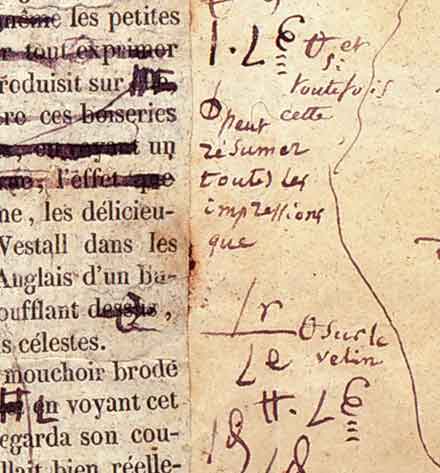 même les petites
r tout exprimer
roduisit sur
ces boiseries
, en voyant un
l'effet que
me, les délicieu-
Vestall dans les
Anglais d'un ba-
oufflant dessus,
s célestes.
mouchoir brodé
en voyant cet
egarda son cou-
llait bien réelle-
et
si
toutefois
cette
peut
résumer
toutes les
impressions
que
r
sur le
Le
velin